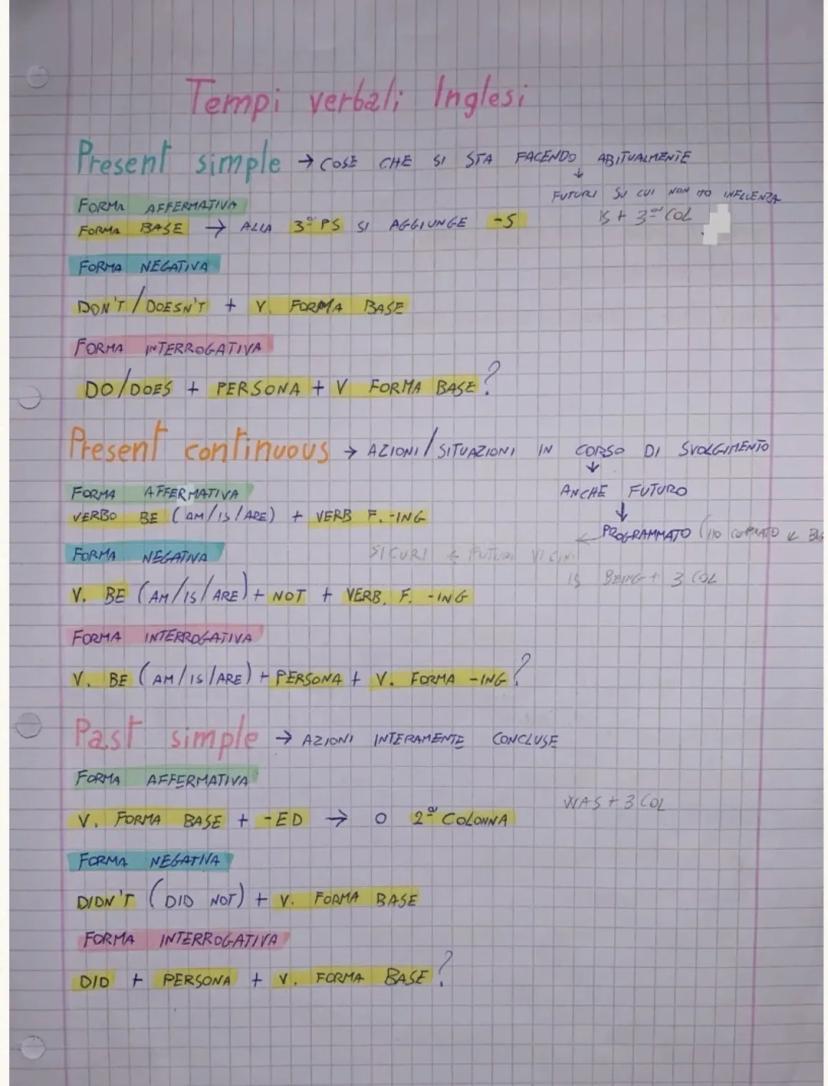 Tempi verbali Inglesi
Present simple → COSE CHE SI STA FACENDO ABITUALMENTE
↓
FUTURI SU CUI NON HO INFLUENZA
FORMA AFFERMATIVA
IS + 3ª COL
FORMA BASE → ALLA 3ª PS SI AGGIUNGE -S
FORMA NEGATIVA
DON'T/DOESN'T + V. FORMA BASE
FORMA INTERROGATIVA
DO/DOES + PERSONA + V FORMA BASE?
Present continuous → AZIONI/SITUAZIONI IN CORSO DI SVOLGIMENTO
↓
ANCHE FUTURO
↓
FORMA AFFERMATIVA
VERBO BE (AM/IS/ARE) + VERB F. -ING
PROGRAMMATO (HO COMPRATO
SICURI ← FUTURI VICINI ←
IS BEING + 3 COL
FORMA NEGATIVA
V. BE (AM/IS/ARE) + NOT + VERB. F. -ING
FORMA INTERROGATIVA
V. BE (AM/IS/ARE) + PERSONA + V. FORMA -ING?
Past simple → AZIONI INTERAMENTE CONCLUSE
FORMA AFFERMATIVA
WAS + 3 COL
V. FORMA BASE + -ED → O 2ª COLONNA
FORMA NEGATIVA
DIDN'T (DID NOT) + V. FORMA BASE
FORMA INTERROGATIVA
DID + PERSONA + V. FORMA BASE?